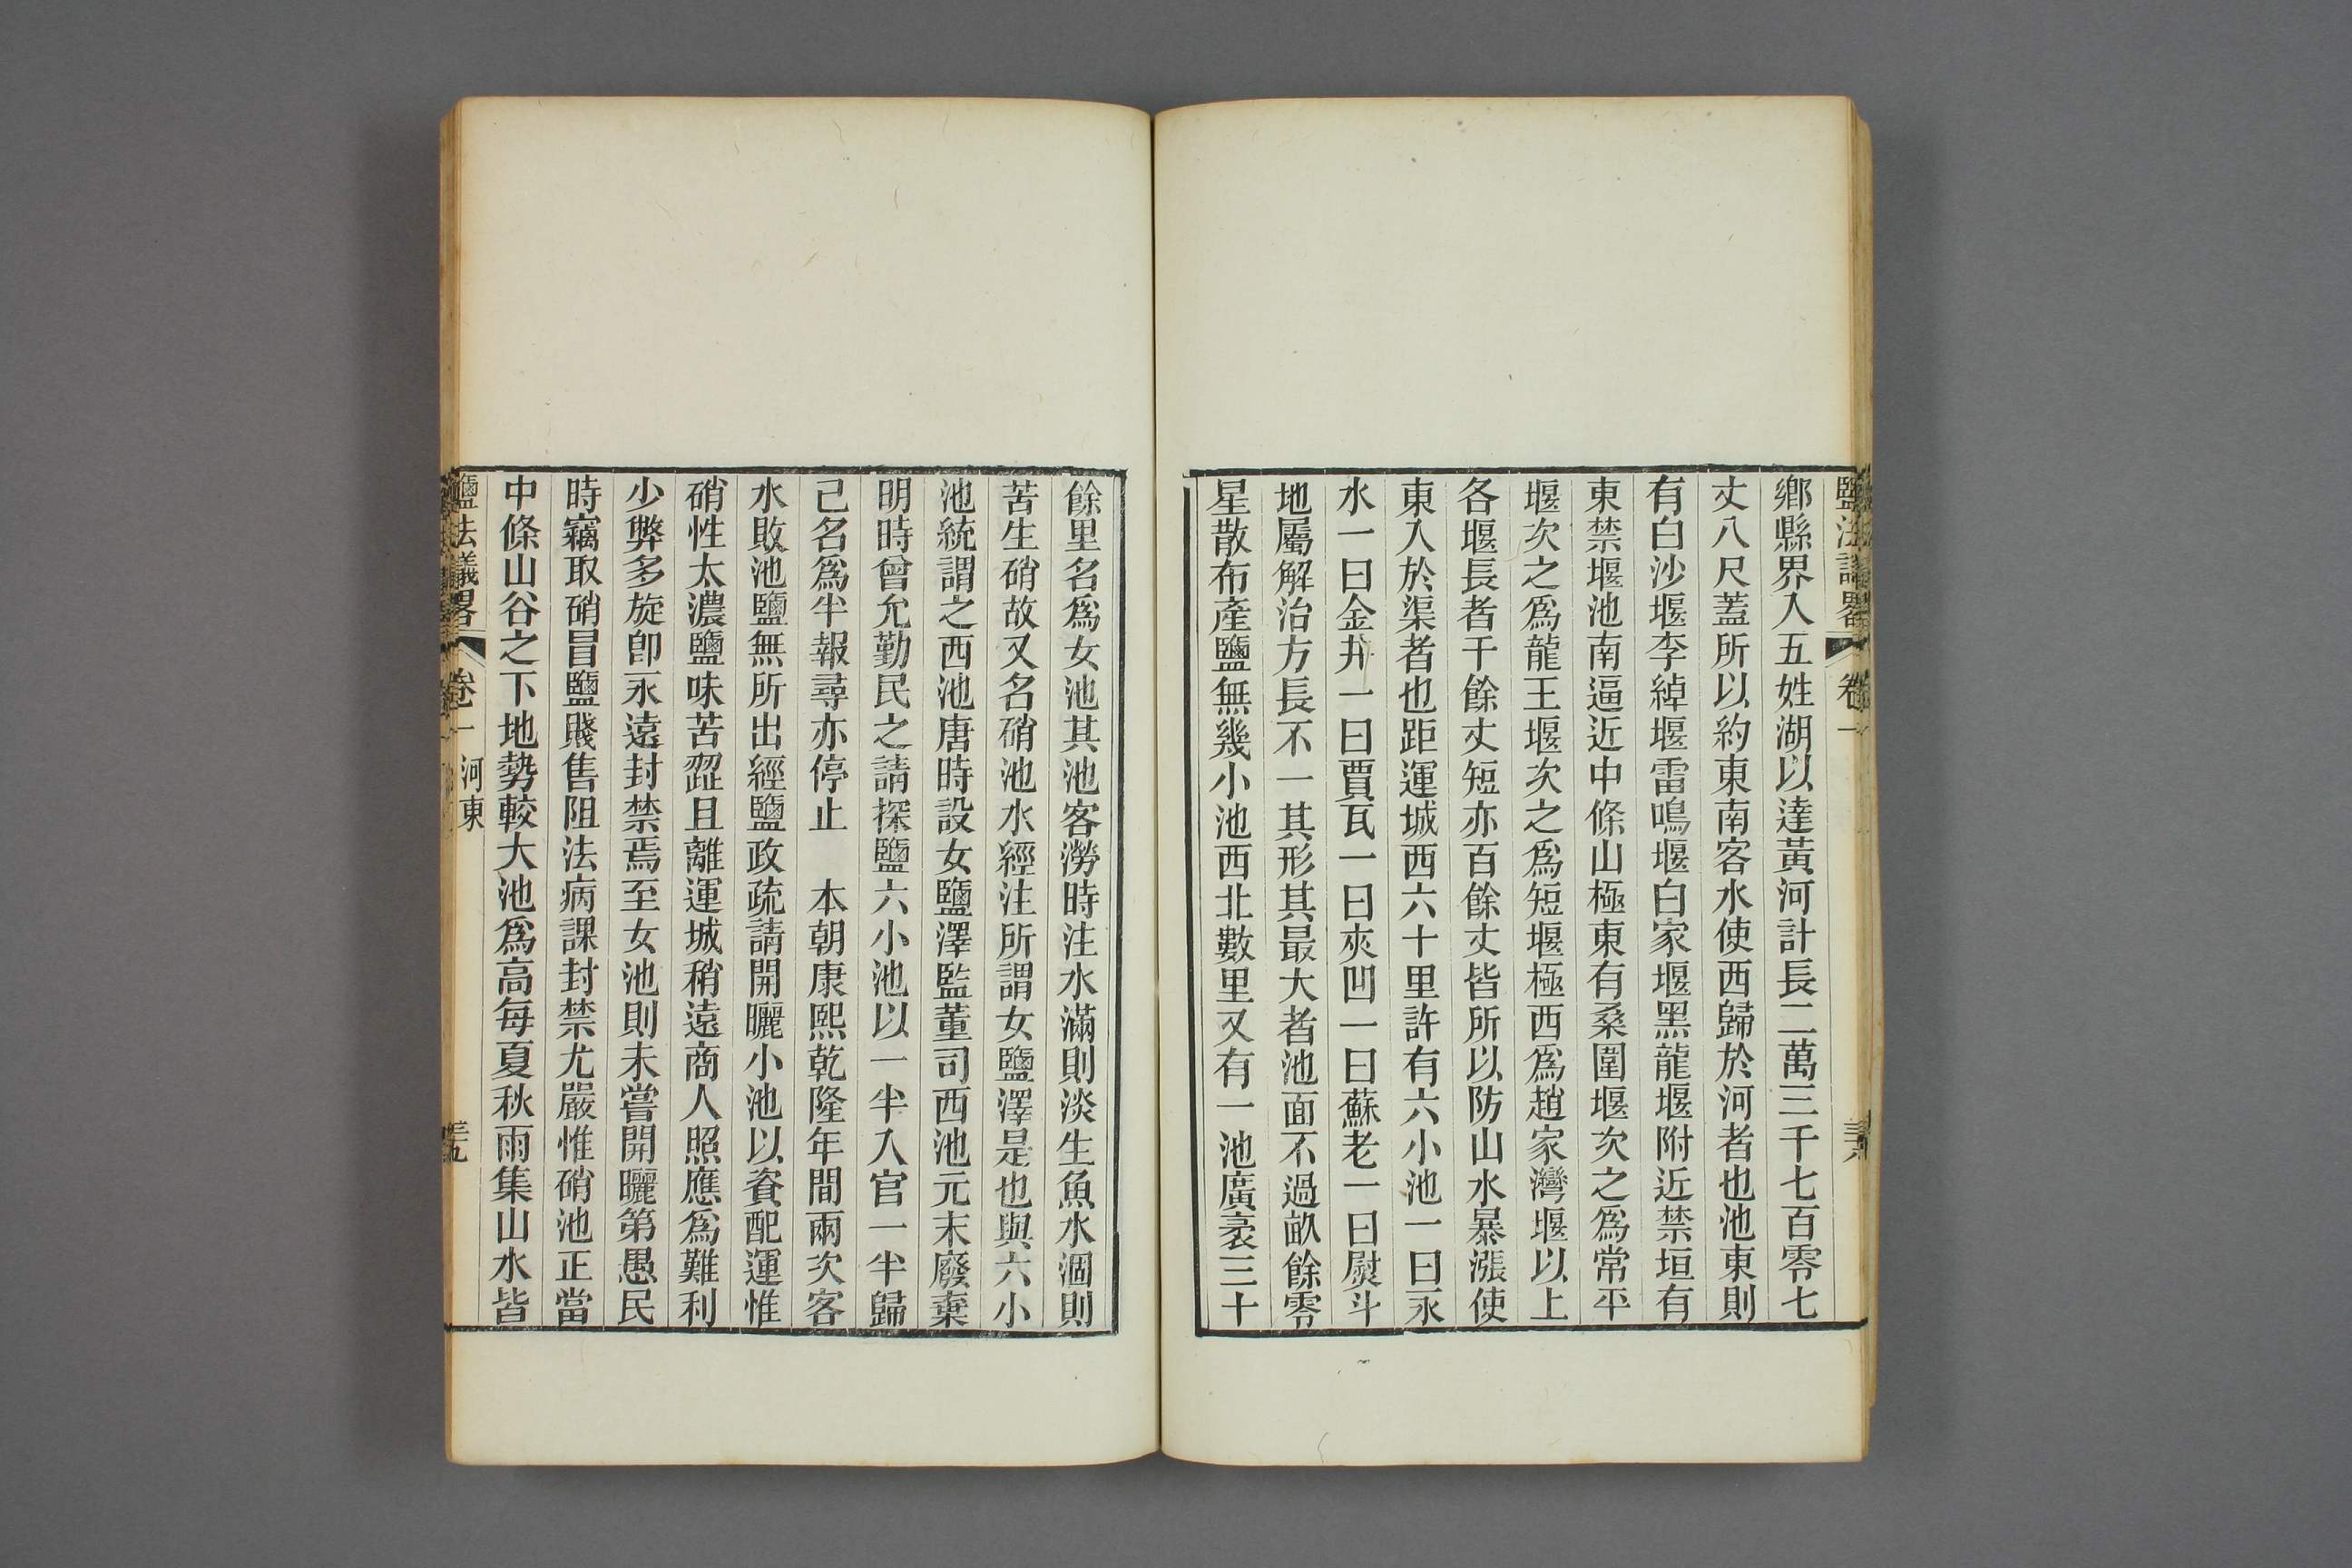 鹽法議畧 卷一
鄕縣界入五姓湖以達黃河計長二萬三千七百零七
丈八尺蓋所以約東南客水使西歸於河者也池東則
有白沙堰李綽堰雷鳴堰白家堰黑龍堰附近禁垣有
東禁堰池南逼近中條山極東有桑園堰次之爲常平
堰次之爲龍王堰次之爲短堰極西爲趙家灣堰以上
各堰長者千餘丈短亦百餘丈皆所以防山水暴漲使
東入於渠者也距運城西六十里許有六小池一曰永
水一曰金井一曰賈瓦一曰夾凹一曰蘇老一曰熨斗
地屬解治方長不一其形其最大者池面不過畝餘零
星散布產鹽無幾小池西北數里又有一池廣袤三十
餘里名爲女池其池客澇時注水滿則淡生魚水涸則
苦生硝故又名硝池水經注所謂女鹽澤是也與六小
池統謂之西池唐時設女鹽澤監董司西池元末廢棄
明時曾允勤民之請探鹽六小池以一半入官一半歸
己名爲半報尋亦停止　本朝康熙乾隆年間兩次客
水敗池鹽無所出經鹽政疏請開曬小池以資配運惟
硝性太濃鹽味苦澀且離運城稍遠商人照應爲難利
少弊多旋卽永遠封禁焉至女池則未嘗開曬第愚民
時竊取硝冒鹽賤售阻法病課封禁尤嚴惟硝池正當
中條山谷之下地勢較大池爲高每夏秋雨集山水皆
鹽法議畧 卷一 河東